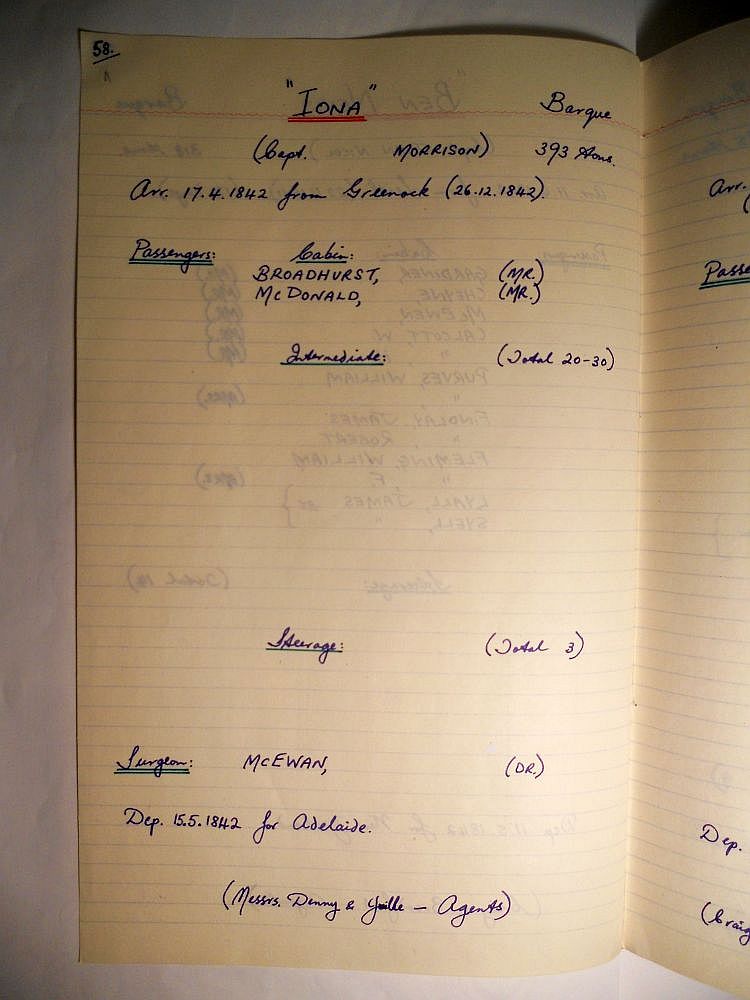 58.
"IONA" Barque
(Capt. MORRISON) 393 tons.
Arr. 17.4.1842 from Greenock (26.12.1842).
Passengers: Cabin:
BROADHURST, (MR.)
McDONALD, (MR.)
Intermediate: (Total 20-30)
Steerage: (Total 3)
Surgeon: McEWAN, (DR.)
Dep. 15.5.1842 for Adelaide.
(Messrs. Denny & – Agents)
Arr.
(
Passe
Dep.
(Craig